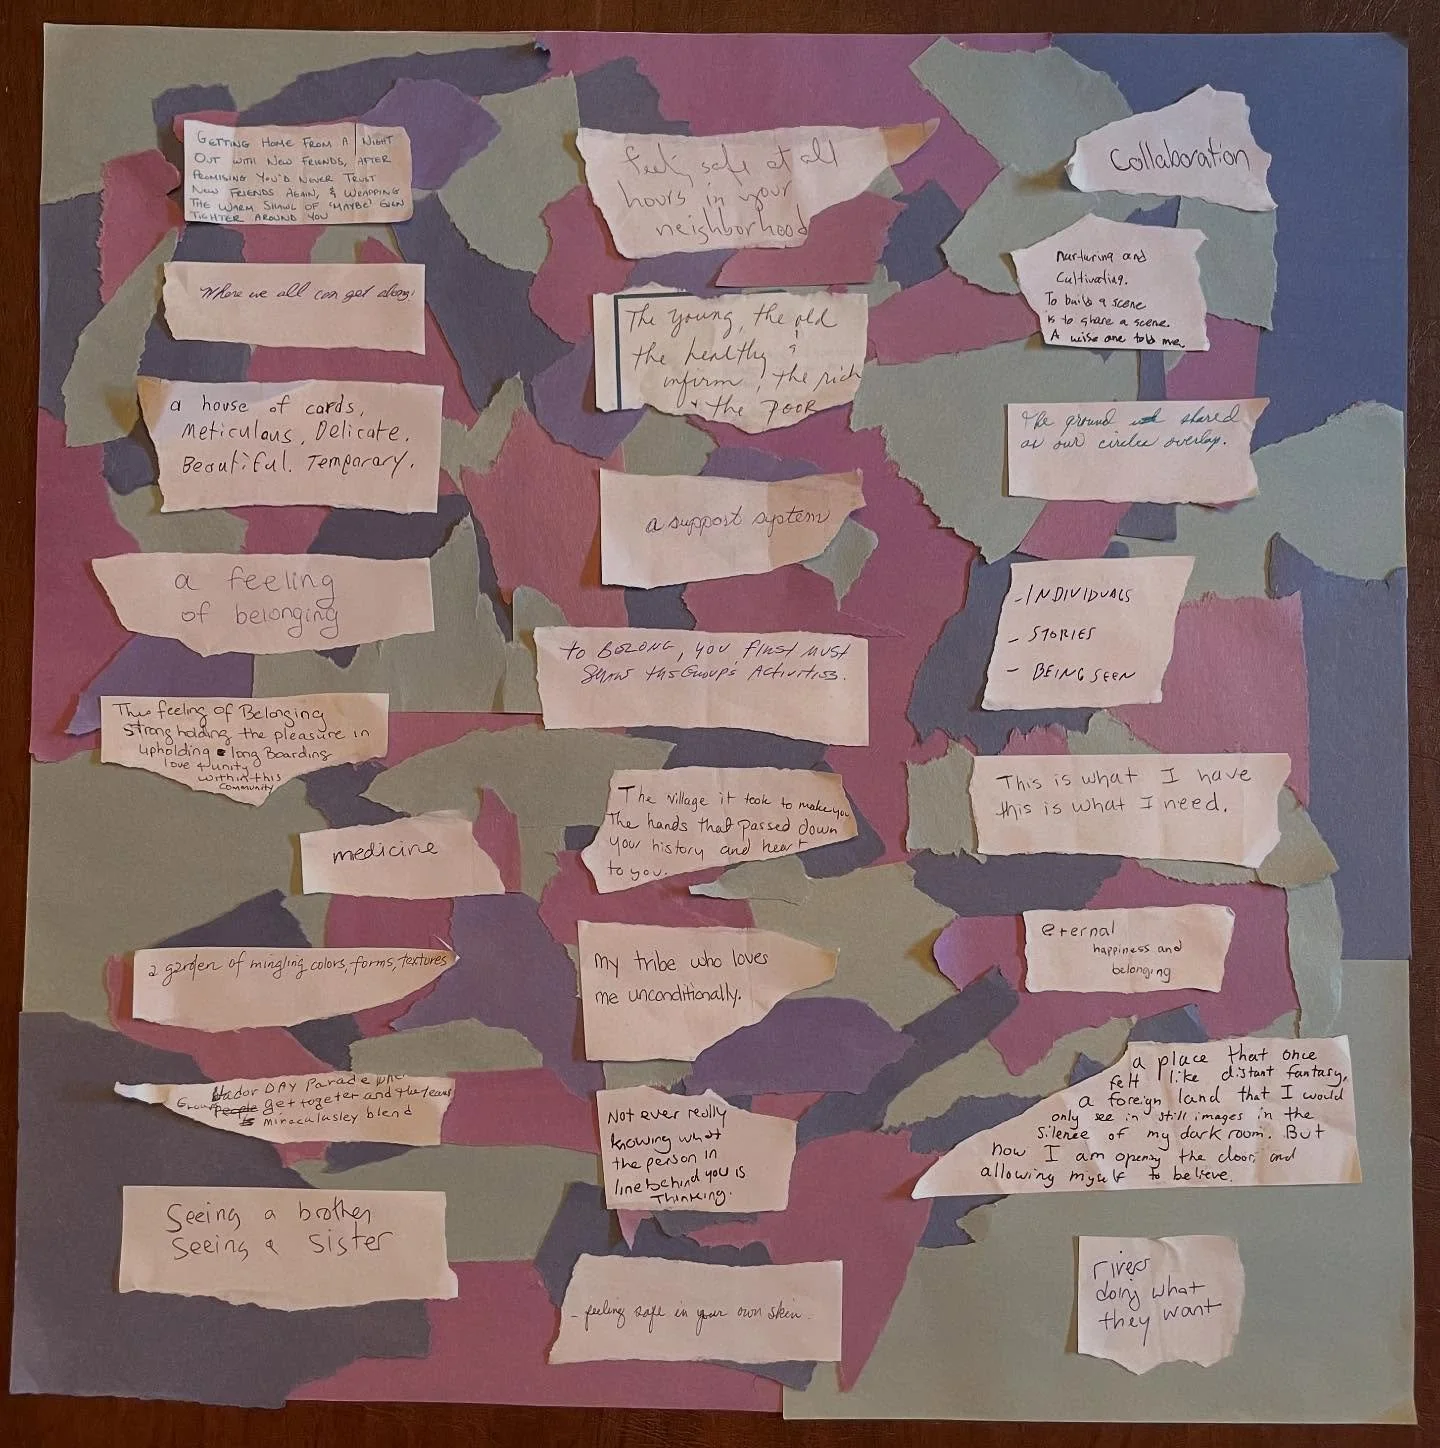 GETTING HOME FROM A NIGHT
OUT WITH NEW FRIENDS, AFTER
PROMISING YOU'D NEVER TRUST
NEW FRIENDS AGAIN, & WRAPPING
THE WARM SHAWL OF 'MAYBE' EVEN
TIGHTER AROUND YOU
Where we all can get along.
a house of cards,
Meticulous, Delicate.
Beautiful. Temporary.
a feeling
of belonging
The feeling of Belonging
strong holding the pleasure in
upholding long Boarding
love & unity
within this
community
medicine
a garden of mingling colors, forms, textures
DAY Parade
Group People get togeter and the tears
is miraculasley blend
Seeing a brother
Seeing a sister
feeling safe at all
hours in your
neighborhood
The young, the old
the healthy &
infirm, the rich
& the POOR
a support system
to BELONG, you first must
the Group's Activities.
The village it took to make you
The hands that passed down
your history and heart
to you.
my tribe who loves
me unconditionally.
Not ever really
knowing what
the person in
line behind you is
Thinking.
- feeling safe in your own skin.
Collaboration
Nurturing and
Cultivating.
To build a scene
is to share a scene.
A wise one told me.
The ground is shared
as our circles overlap.
- INDIVIDUALS
- STORIES
- BEING SEEN
This is what I have
this is what I need.
eternal
happiness and
belonging
a place that once
felt like distant fantasy,
a foreign land that I would
only see in still images in the
silence of my dark room. But
now I am opening the door, and
allowing myself to believe.
rivers
doing what
they want